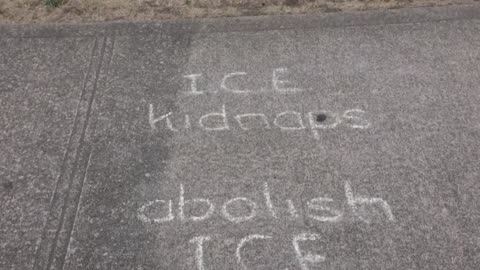 ICE
kidnaps
abolish
ICE